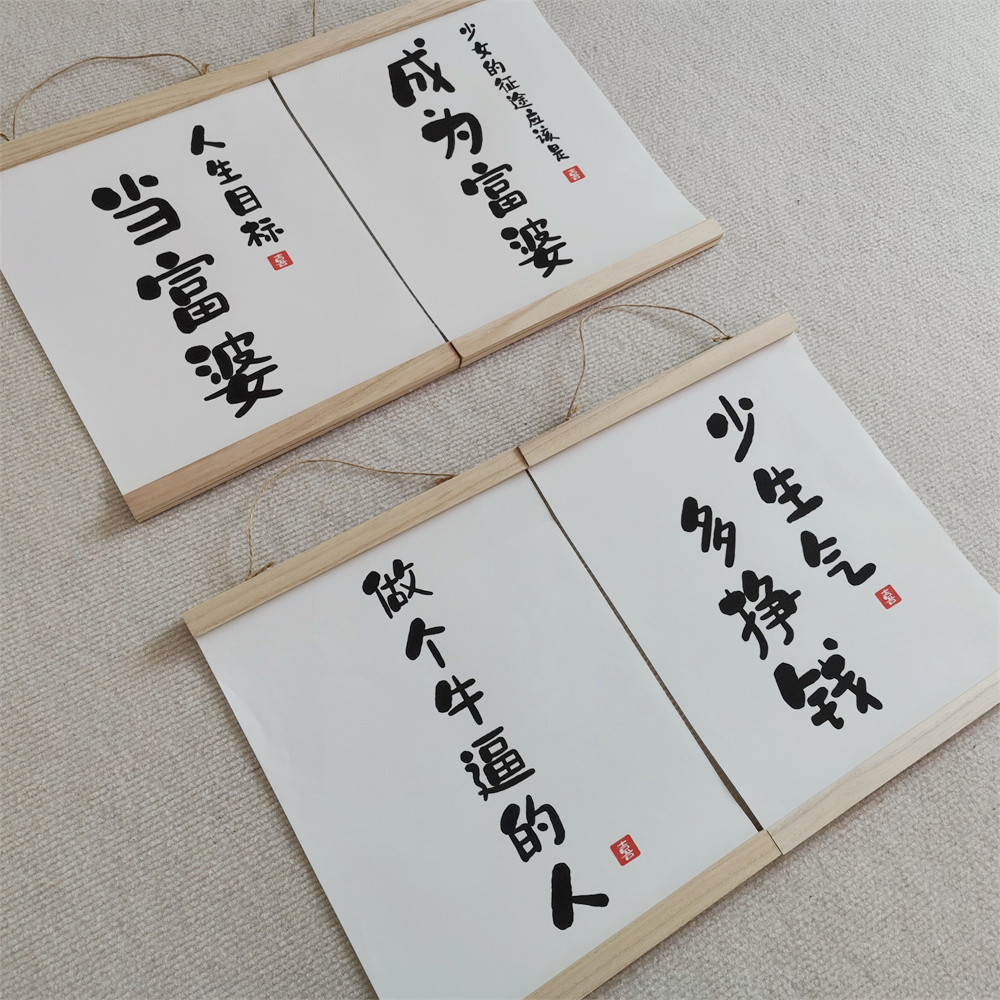 人生目标
当富婆
少女的征途应该是
成为富婆
做个牛逼的人
少生气
多挣钱